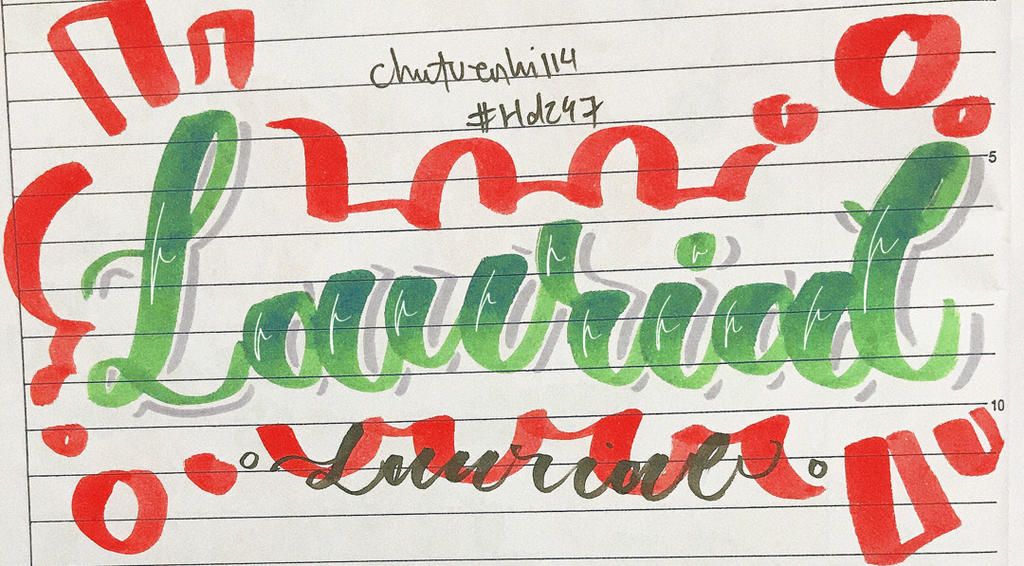 chutuenhi114
#Hd247
5
Laurial
10
Laurial